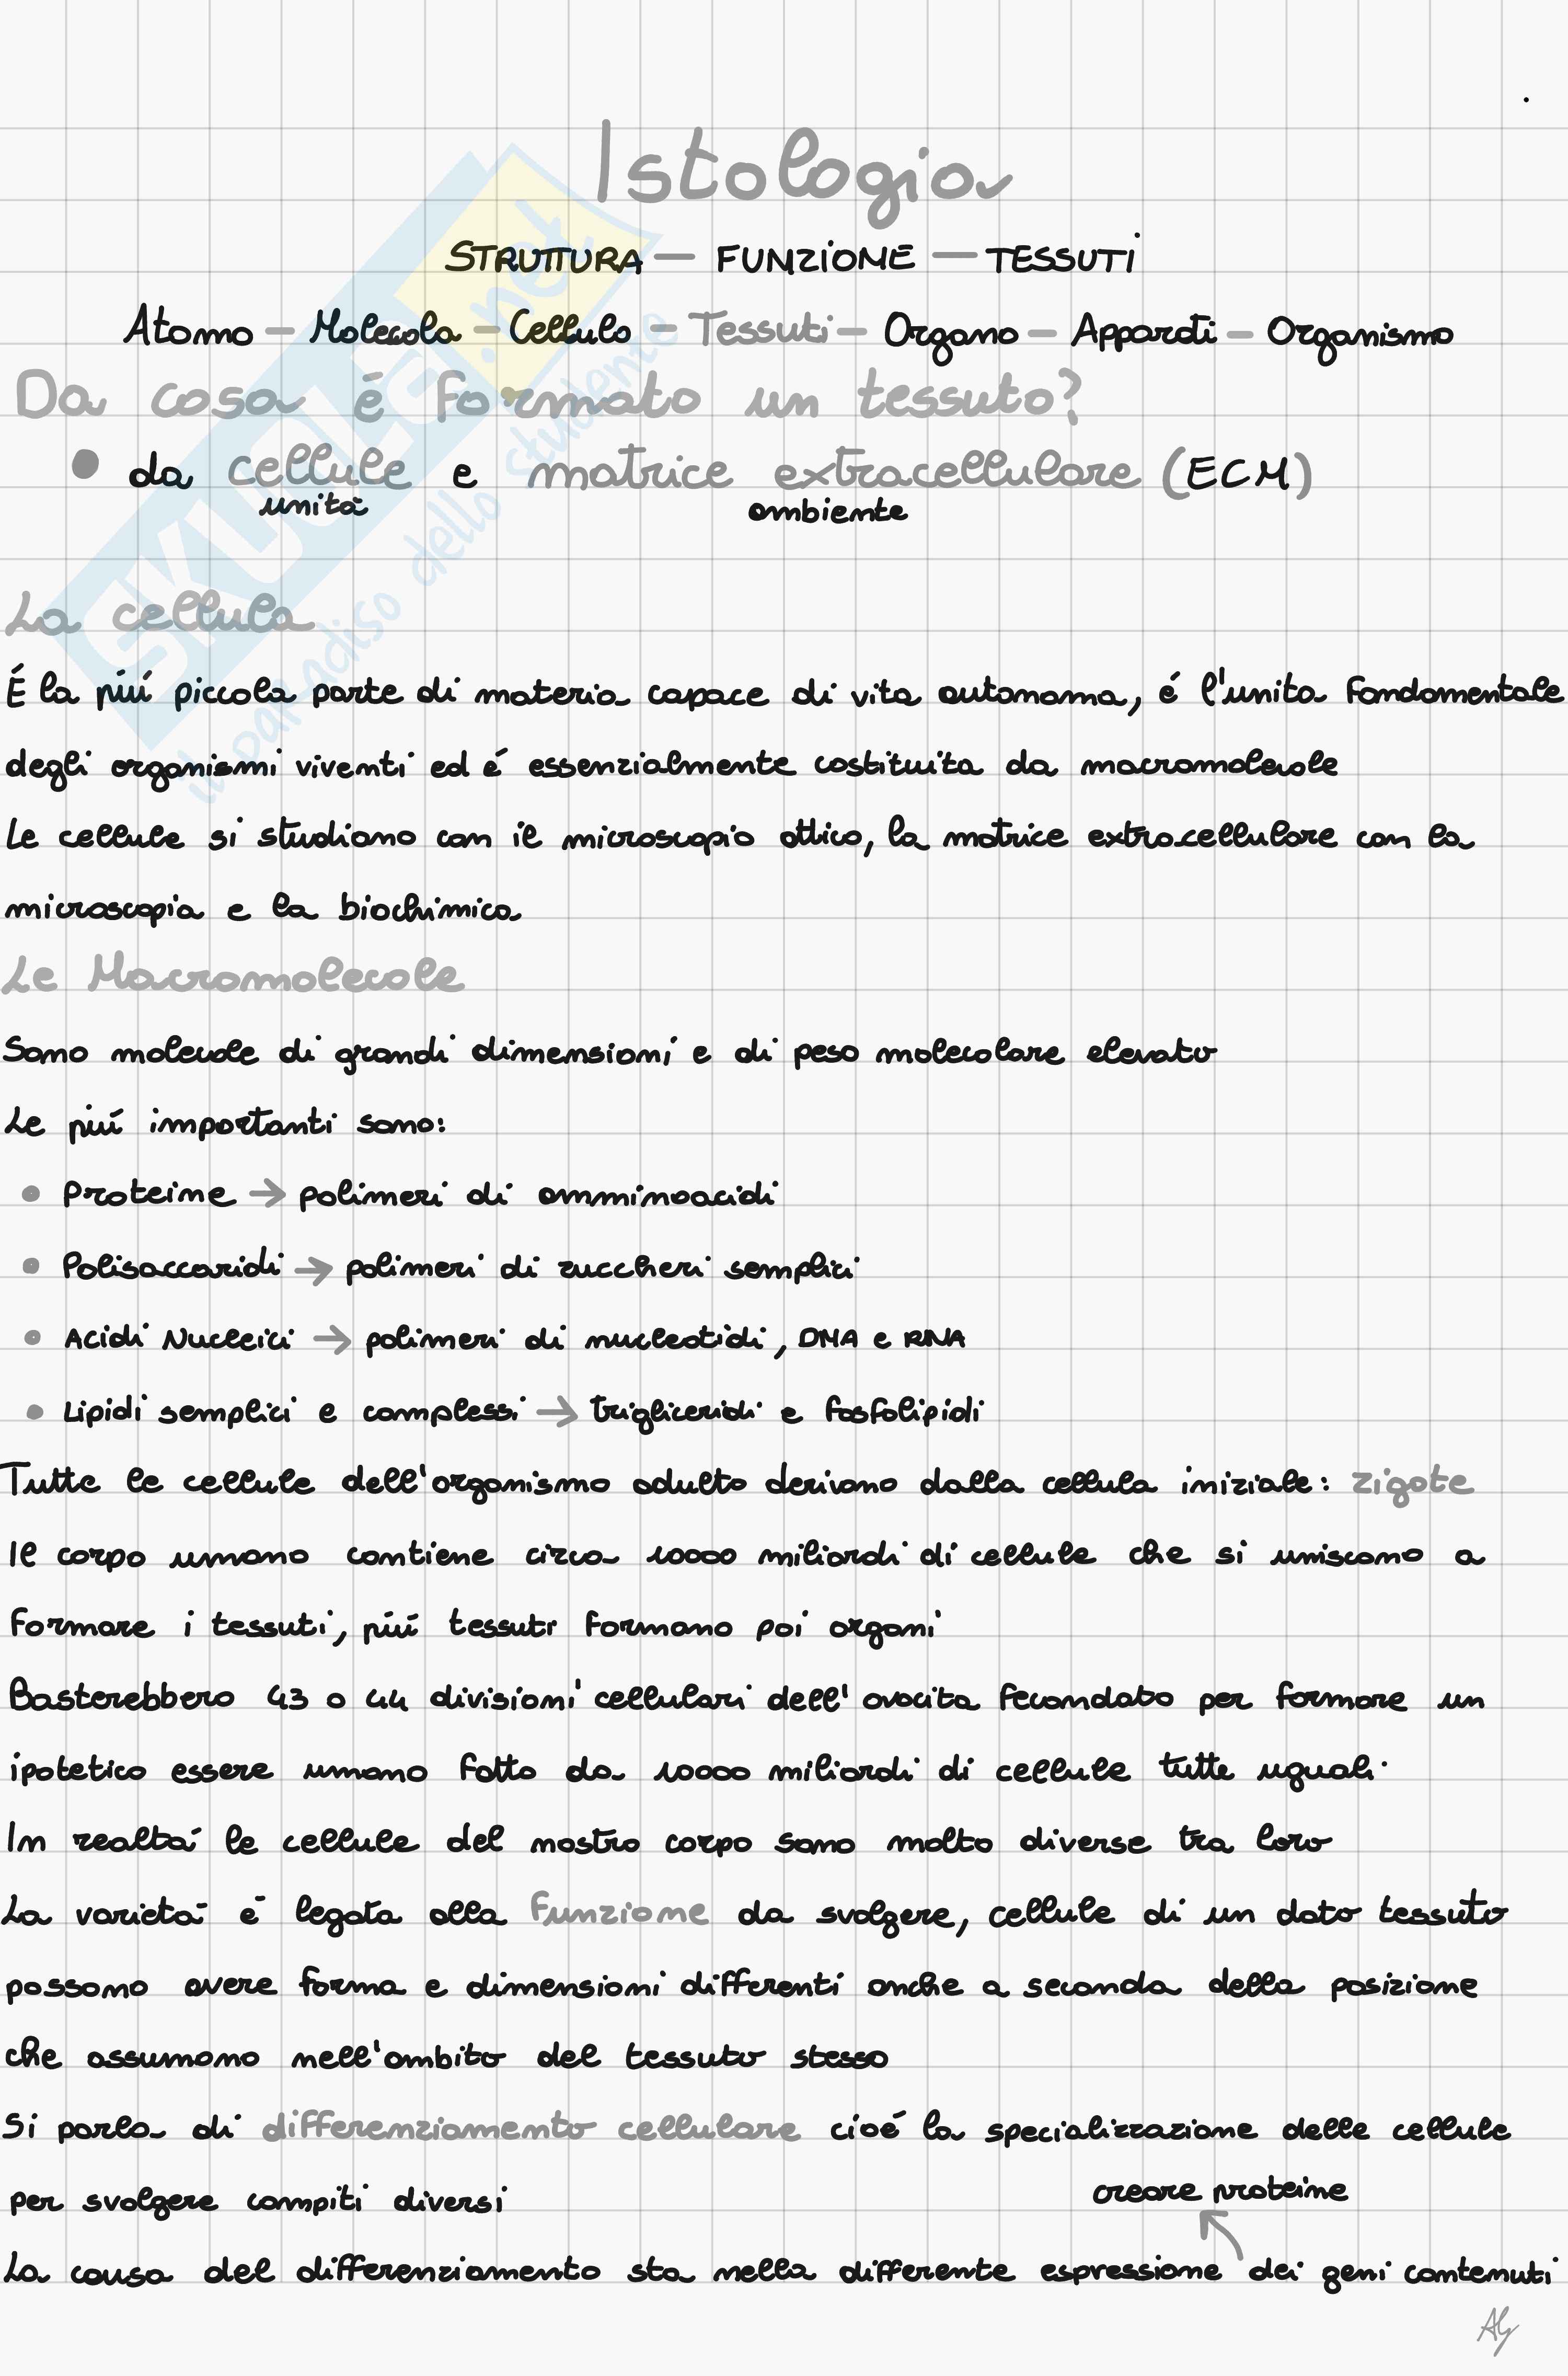 Istologia
STRUTTURA — FUNZIONE — TESSUTI
Atomo — Molecola — Cellula — Tessuti — Organo — Apparati — Organismo
Da cosa é formato un tessuto?
• da cellule e matrice extracellulare (ECM)
unità ambiente
La cellula
É la piú piccola parte di materia capace di vita autonoma, é l'unita fondamentale
degli organismi viventi ed é essenzialmente costituita da macromolecole
Le cellule si studiano con il microscopio ottico, la matrice extracellulare con la
microscopia e la biochimica
Le Macromolecole
Sono molecole di grandi dimensioni e di peso molecolare elevato
Le piú importanti sono:
• Proteine → polimeri di amminoacidi
• Polisaccaridi → polimeri di zuccheri semplici
• Acidi Nucleici → polimeri di nucleotidi, DNA e RNA
• Lipidi semplici e complessi → trigliceridi e fosfolipidi
Tutte le cellule dell'organismo adulto derivano dalla cellula iniziale: zigote
Il corpo umano contiene circa 10000 miliardi di cellule che si uniscono a
formare i tessuti, piú tessuti formano poi organi
Basterebbero 43 o 44 divisioni cellulari dell'ovocita fecondato per formare un
ipotetico essere umano fatto da 10000 miliardi di cellule tutte uguali
In realtá le cellule del nostro corpo sono molto diverse tra loro
La varietà è legata alla funzione da svolgere, cellule di un dato tessuto
possono avere forma e dimensioni differenti anche a seconda della posizione
che assumono nell'ambito del tessuto stesso
Si parla di differenziamento cellulare cioé la specializzazione delle cellule
per svolgere compiti diversi
creare proteine
La causa del differenziamento sta nella differente espressione dei geni contenuti
SKUOLA.net
il paradiso dello studente